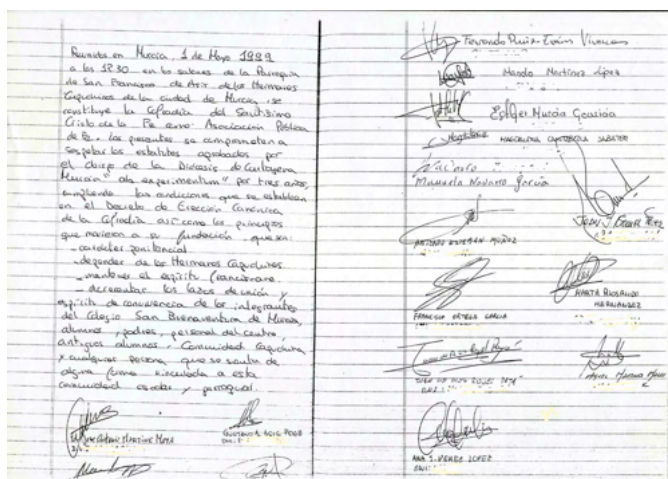 Reunidos en Murcia, 1 de Mayo 1999
a las 12'30 en los salones de la Parroquia
de San Francisco de Asís de los Hermanos
Capuchinos de la ciudad de Murcia, se
constituye la Cofradía del Santísimo
Cristo de la Fe como Asociación Pública
de Fe. Los presentes se comprometen a
respetar los estatutos aprobados por
el Obispo de la Diócesis de Cartagena
Murcia "ad experimentum" por tres años,
cumpliendo las condiciones que se establecen
en el Decreto de Erección Canónica
de la Cofradía así como los principios
que movieron a su fundación, que son:
- carácter penitencial.
- depender de los Hermanos Capuchinos.
- mantener el espíritu franciscano.
- acrecentar los lazos de unión y
espíritu de convivencia de los integrantes
del Colegio San Buenaventura de Murcia,
alumnos, padres, personal del centro
antiguos alumnos, Comunidad Capuchina
y cualquier persona que se sienta de
alguna forma vinculada a esta
comunidad escolar y parroquial.
Antonio Martínez Moya
Gustavo
Fernando Ruiz-Funes
Martínez López
Esther Murcia García
Magdalena
Manuela Navarro García
Antonio Esteban Muñoz
Juan J.
Francisco Ortega García
Marta
Hernández
Juan
Miguel
Ana I. Pérez López